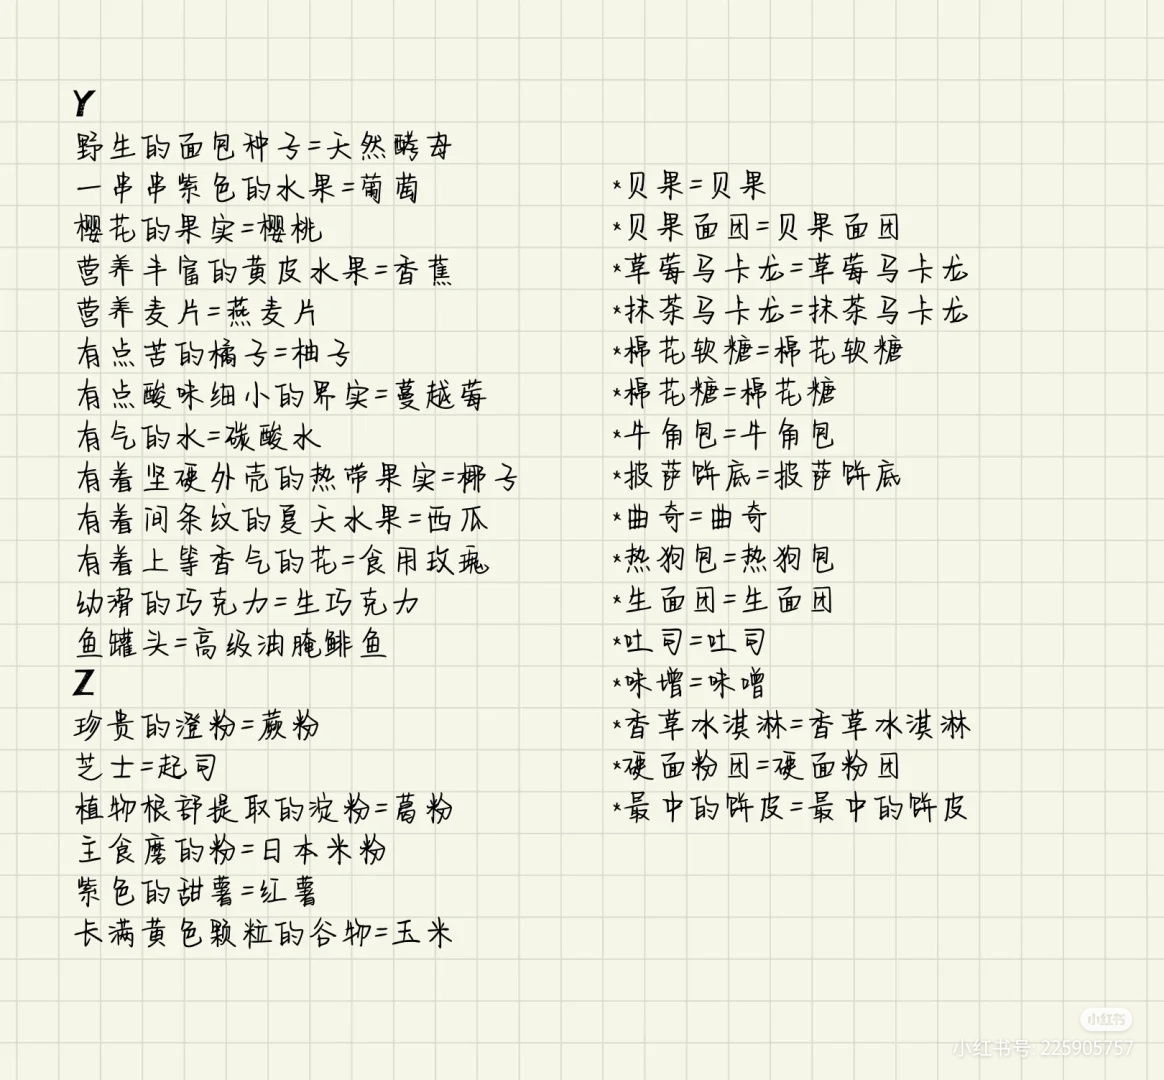 Y
野生的面包种子=天然酵母
一串串紫色的水果=葡萄
樱花的果实=樱桃
营养丰富的黄皮水果=香蕉
营养麦片=燕麦片
有点苦的橘子=柚子
有点酸味细小的界实=蔓越莓
有气的水=碳酸水
有着坚硬外壳的热带果实=椰子
有着间条纹的夏天水果=西瓜
有着上等香气的花=食用玫瑰
幼滑的巧克力=生巧克力
鱼罐头=高级油腌鲱鱼
Z
珍贵的澄粉=蕨粉
芝士=起司
植物根部提取的淀粉=葛粉
主食磨的粉=日本米粉
紫色的甜薯=红薯
长满黄色颗粒的谷物=玉米
*贝果=贝果
*贝果面团=贝果面团
*草莓马卡龙=草莓马卡龙
*抹茶马卡龙=抹茶马卡龙
*棉花软糖=棉花软糖
*棉花糖=棉花糖
*牛角包=牛角包
*披萨饼底=披萨饼底
*曲奇=曲奇
*热狗包=热狗包
*生面团=生面团
*吐司=吐司
*味增=味噌
*香草冰淇淋=香草冰淇淋
*硬面粉团=硬面粉团
*最中的饼皮=最中的饼皮
小红书
小红书号: 225905757